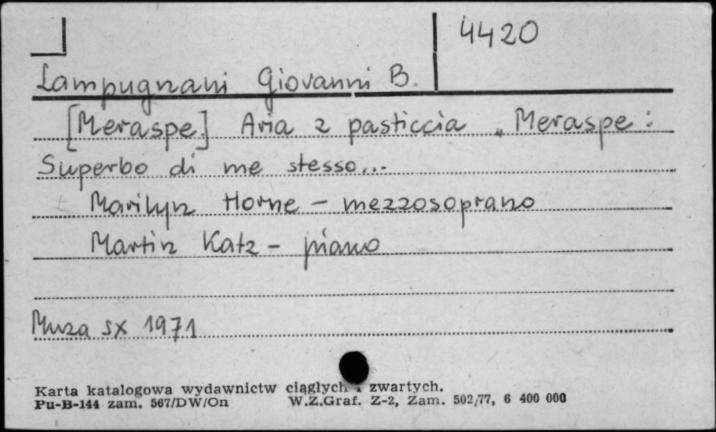 4420
Lampugnani Giovanni B.
[Meraspe] Aria z pasticcia „Meraspe:
Superbo di me stesso...
Marilyn Horne – mezzosoprano
Martin Katz – piano
Muza SX 1971
Karta katalogowa wydawnictw ciągłych i zwartych.
Pu-B-144 zam. 567/DW/On W.Z.Graf. Z-2, Zam. 502/77, 6 400 000